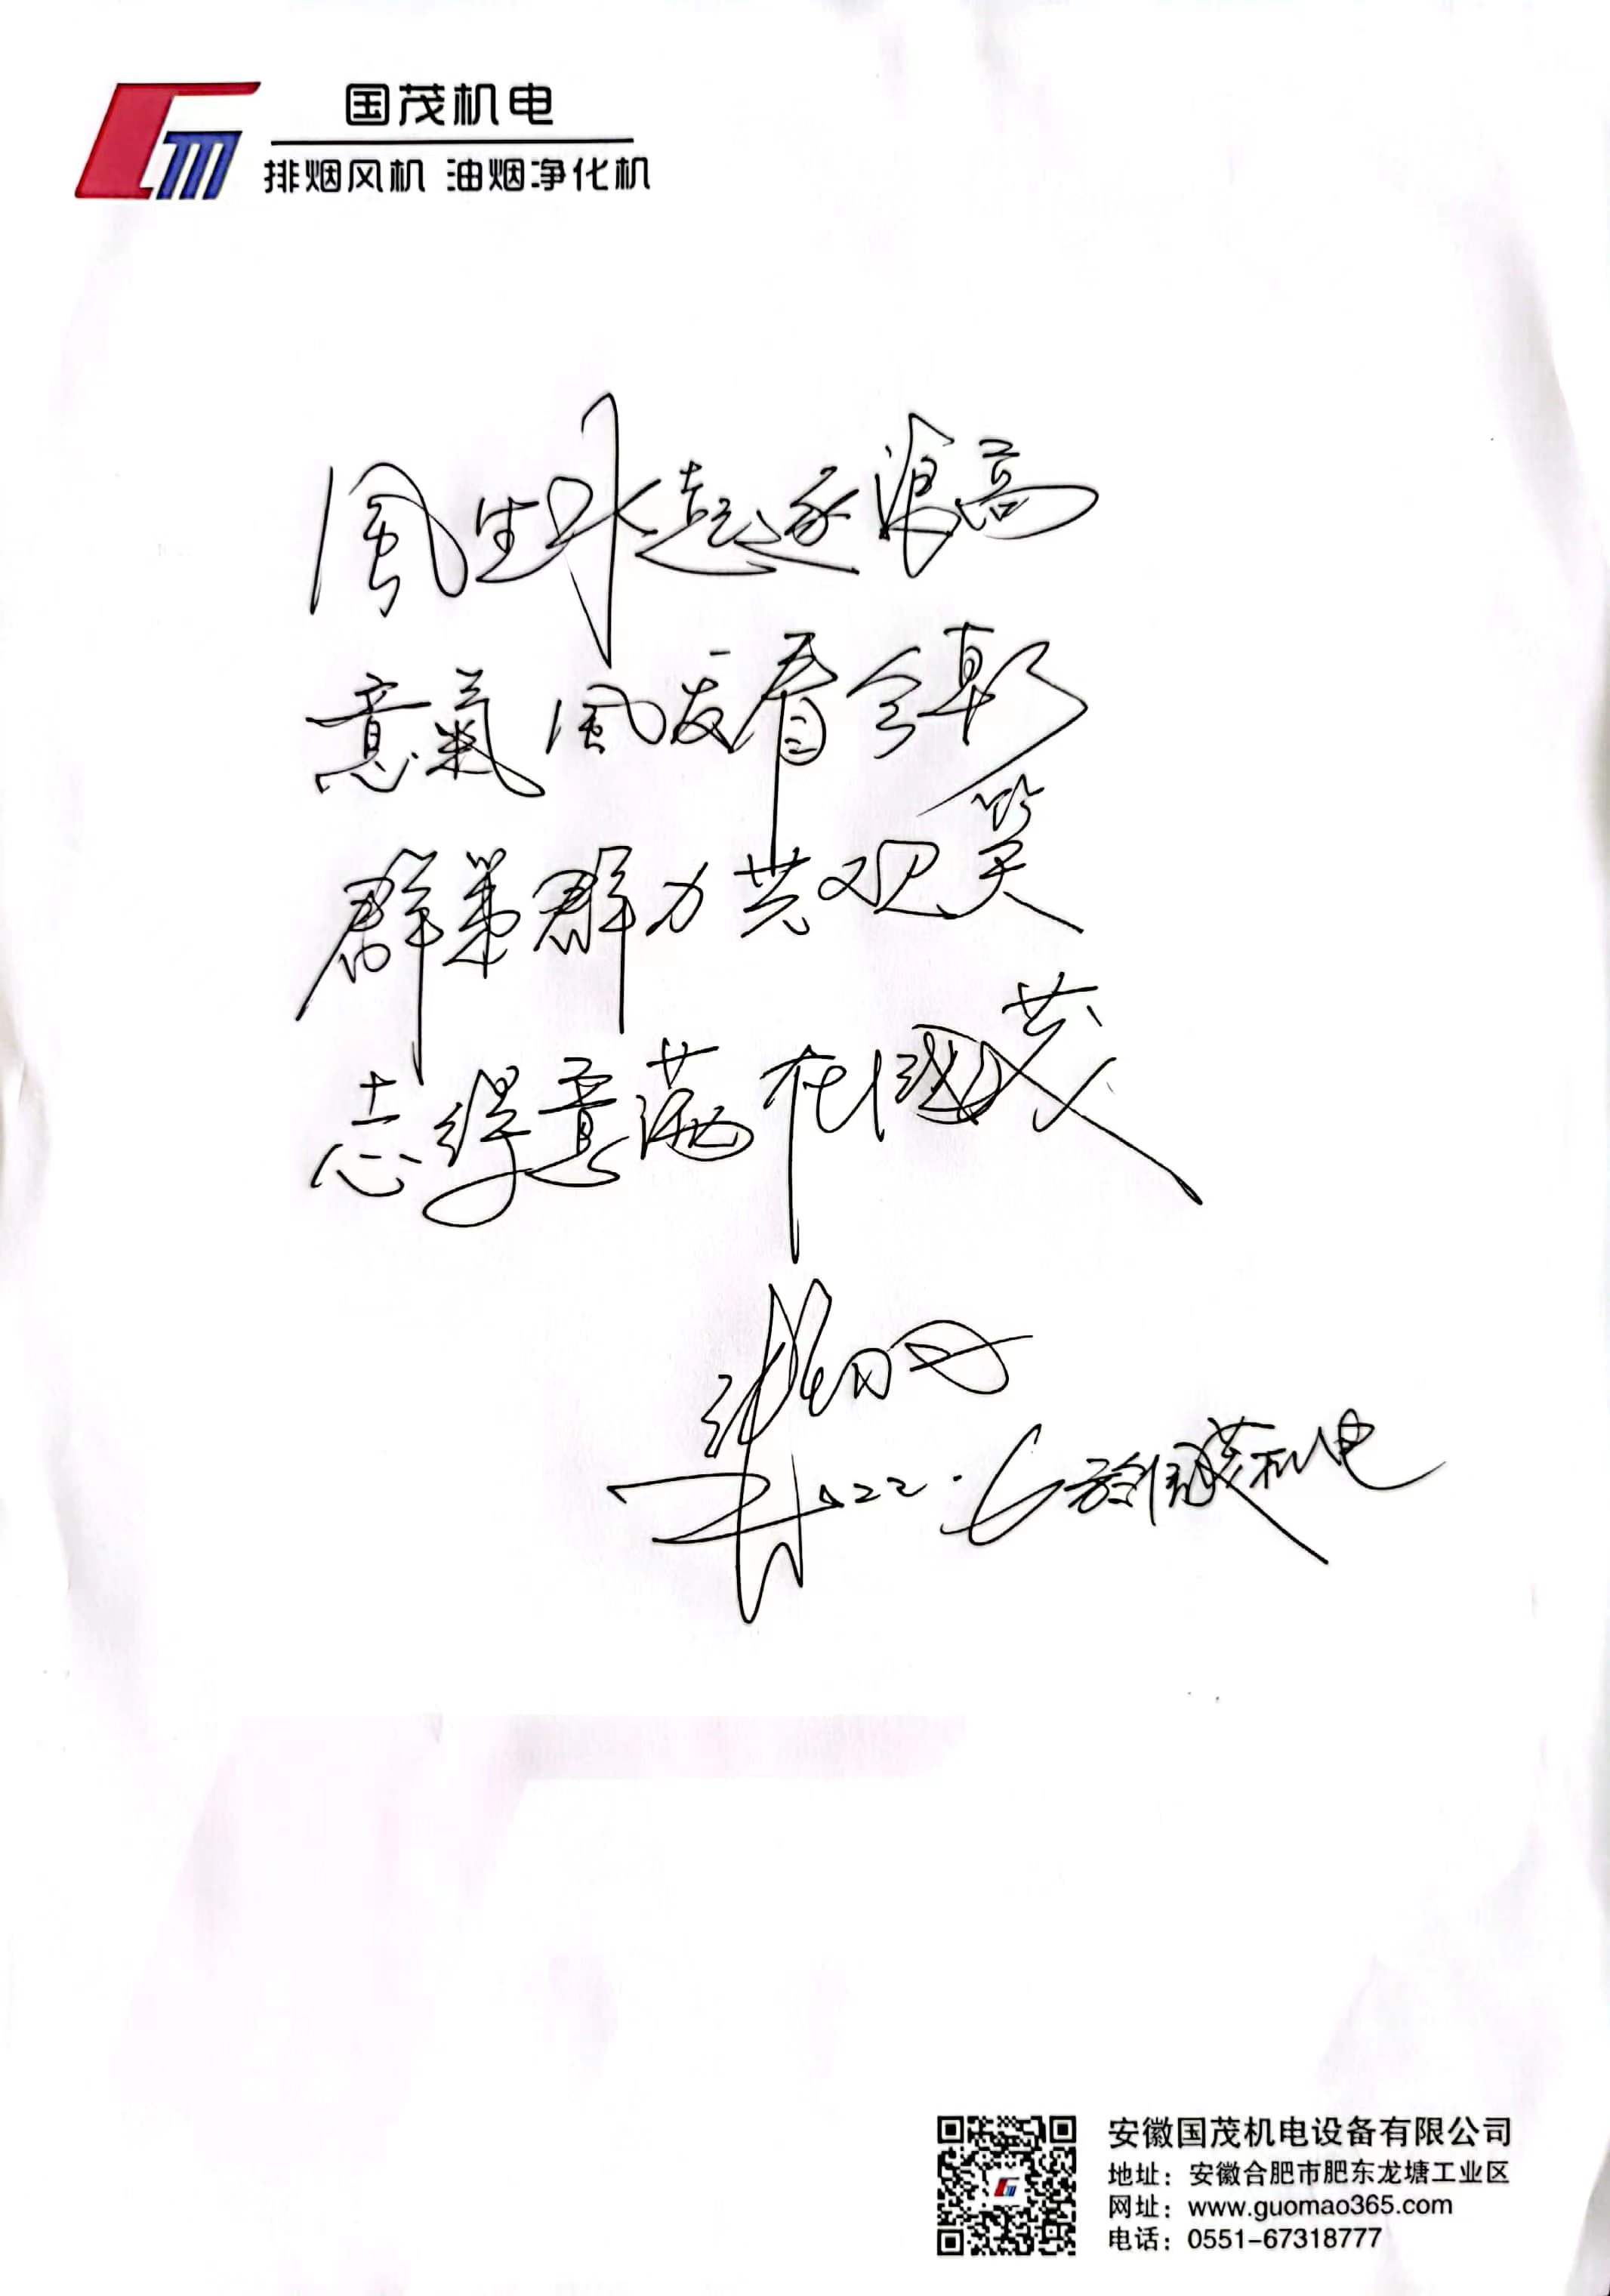 国茂机电
排烟风机 油烟净化机
風生水起逐浪高
意氣風发看今朝
群策群力共欢笑
志得意满在國茂
2022.6 於國茂机电
安徽国茂机电设备有限公司
地址：安徽合肥市肥东龙塘工业区
网址：www.guomao365.com
电话：0551-67318777